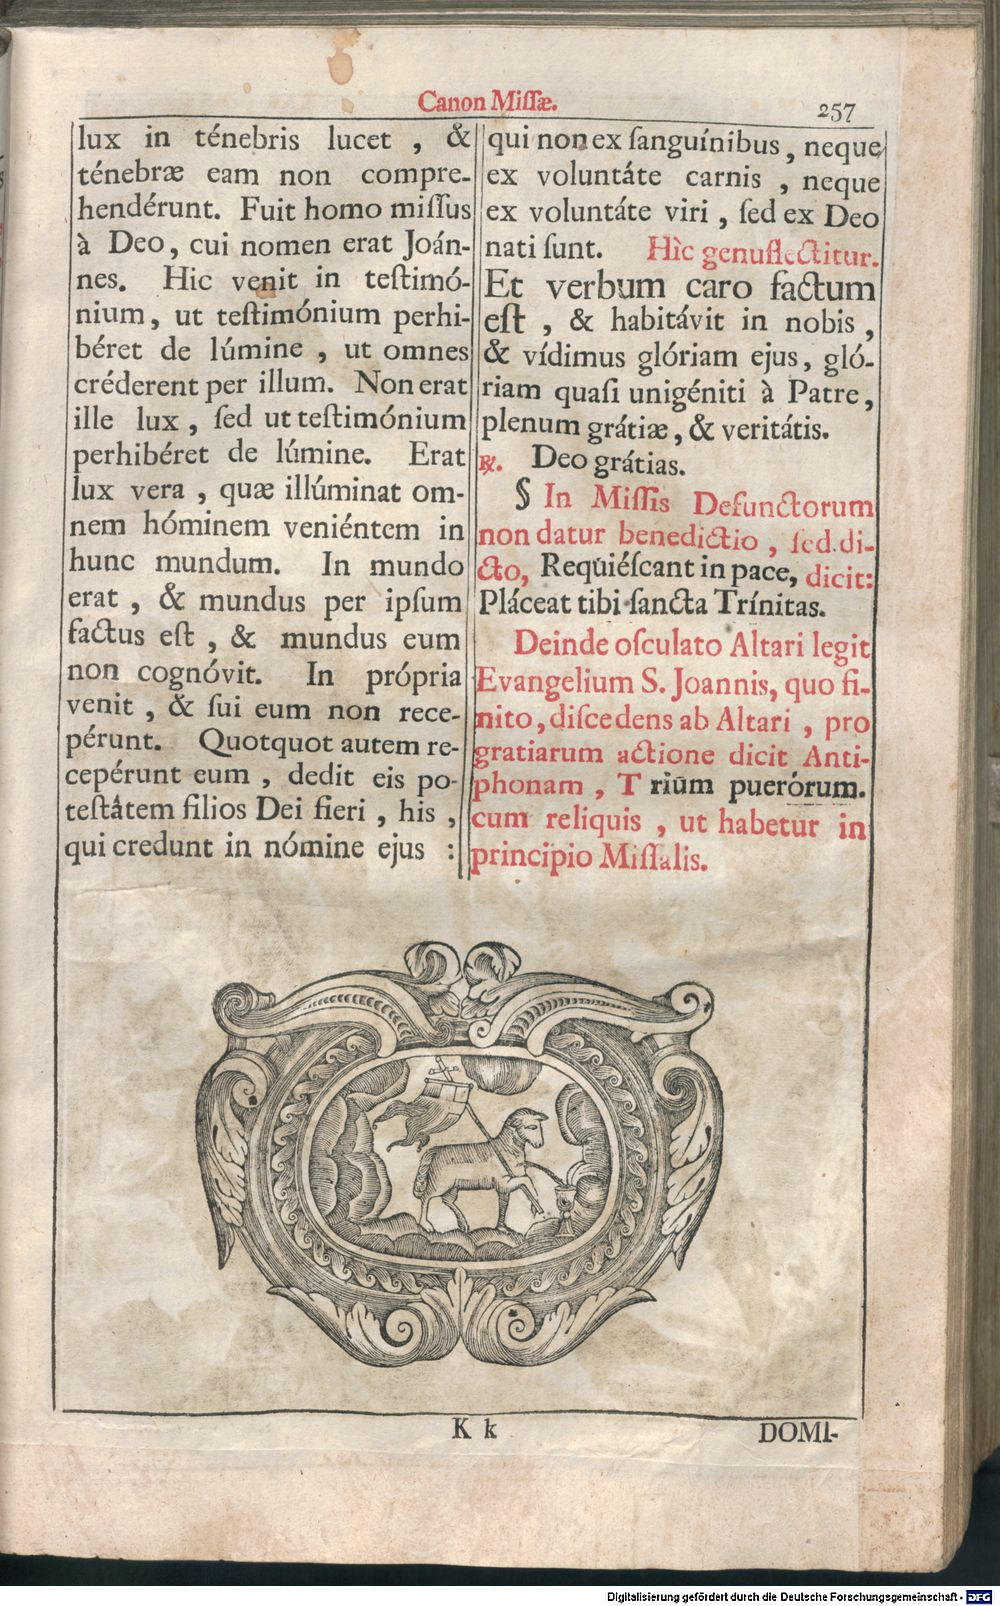 Canon Miſſæ.
257
lux in ténebris lucet , &
ténebræ eam non compre-
hendérunt. Fuit homo miſſus
à Deo, cui nomen erat Joán-
nes. Hic venit in teſtimó-
nium, ut teſtimónium perhi-
béret de lúmine , ut omnes
créderent per illum. Non erat
ille lux , ſed ut teſtimónium
perhibéret de lúmine. Erat
lux vera , quæ illúminat om-
nem hóminem veniéntem in
hunc mundum. In mundo
erat , & mundus per ipſum
factus eſt , & mundus eum
non cognóvit. In própria
venit , & ſui eum non rece-
pérunt. Quotquot autem re-
cepérunt eum , dedit eis po-
teſtátem filios Dei fieri , his ,
qui credunt in nómine ejus :
qui non ex ſanguínibus , neque
ex voluntáte carnis , neque
ex voluntáte viri , ſed ex Deo
nati ſunt. Hìc genuflectitur.
Et verbum caro factum
eſt , & habitávit in nobis ,
& vídimus glóriam ejus, gló-
riam quaſi unigéniti à Patre,
plenum grátiæ, & veritátis.
℞. Deo grátias.
§ In Miſſis Defunctorum
non datur benedictio , ſed di-
cto, Requiéſcant in pace, dicit:
Pláceat tibi ſancta Trínitas.
Deinde oſculato Altari legit
Evangelium S. Joannis, quo fi-
nito, diſcedens ab Altari , pro
gratiarum actione dicit Anti-
phonam , T rium puerórum.
cum reliquis , ut habetur in
principio Miſſalis.
K k
DOMI-
Digitalisierung gefördert durch die Deutsche Forschungsgemeinschaft - DFG